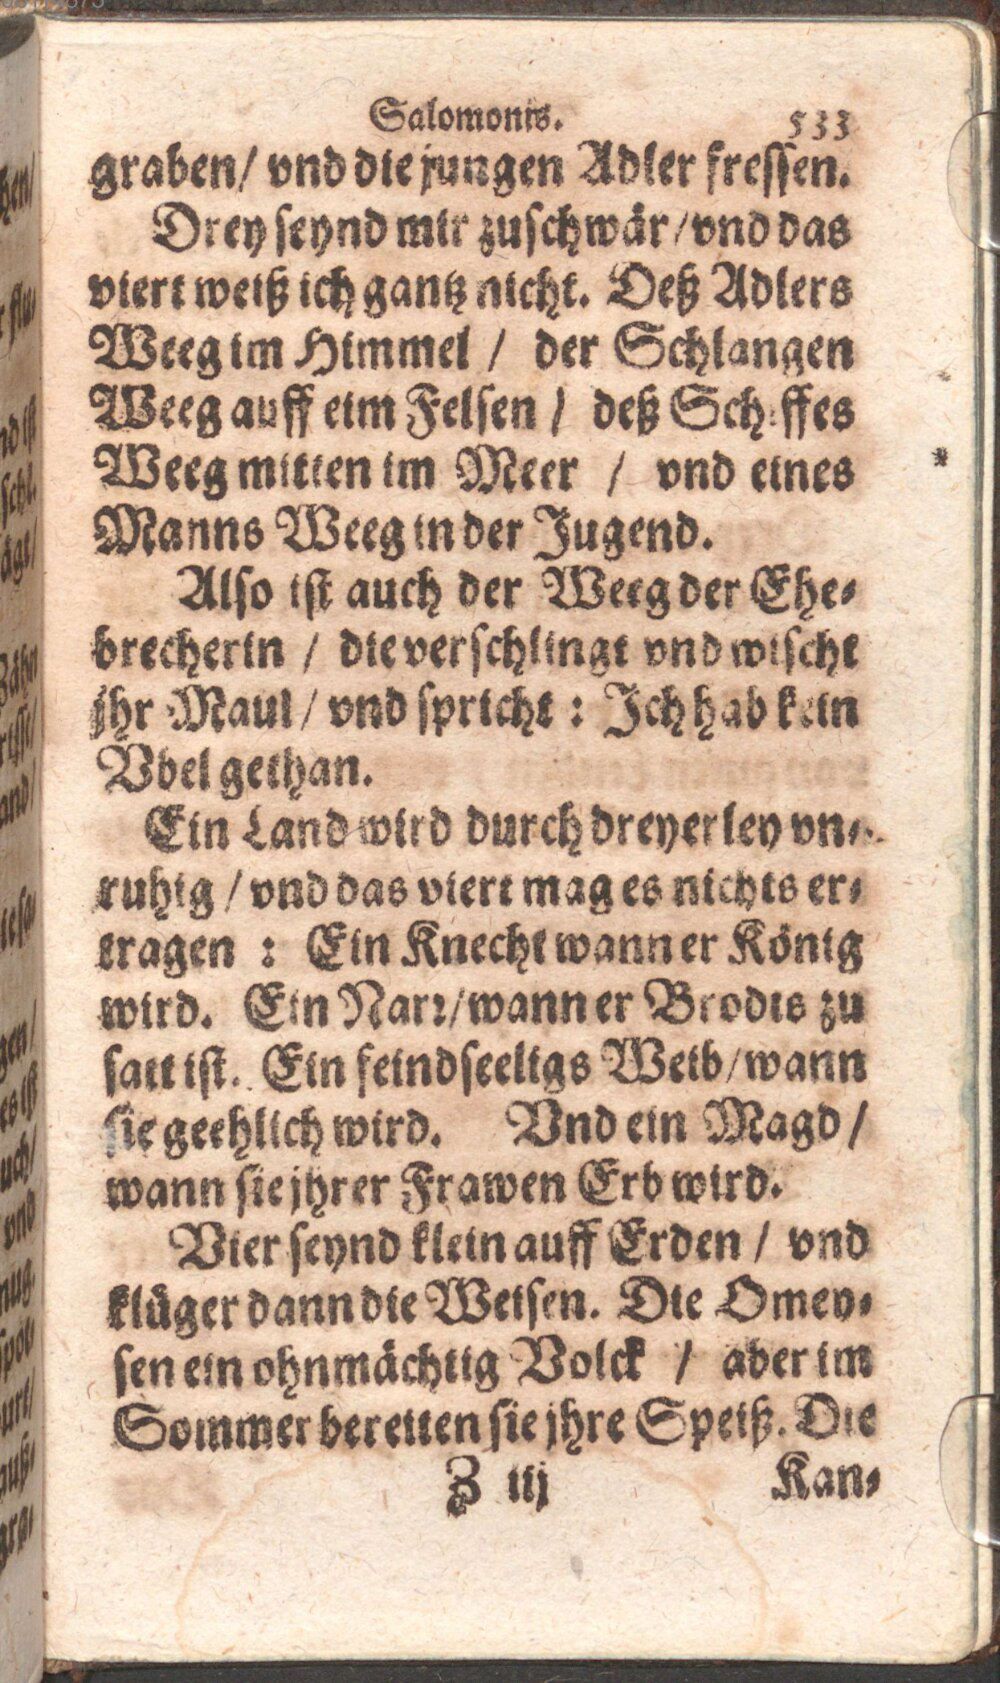 Salomonis. 533
graben/ vnd die jungen Adler fressen.
Drey seynd mir zuschwär/vnd das
viert weiß ich gantz nicht. Deß Adlers
Weeg im Himmel / der Schlangen
Weeg auff eim Felsen / deß Schiffes
Weeg mitten im Meer / vnd eines
Manns Weeg in der Jugend.
Also ist auch der Weeg der Ehe-
brecherin / die verschlingt vnd wischt
jhr Maul/ vnd spricht : Ich hab kein
Vbel gethan.
Ein Land wird durch dreyerley vn-
ruhig / vnd das viert mag es nichts er-
tragen : Ein Knecht wann er König
wird. Ein Narr/wann er Brodts zu
satt ist. Ein feindseeligs Weib/wann
sie geehlich wird. Vnd ein Magd/
wann sie jhrer Frawen Erb wird.
Vier seynd klein auff Erden / vnd
klüger dann die Weisen. Die Omey-
sen ein ohnmächtig Volck / aber im
Sommer bereiten sie jhre Speiß. Die
Z iij Kan-